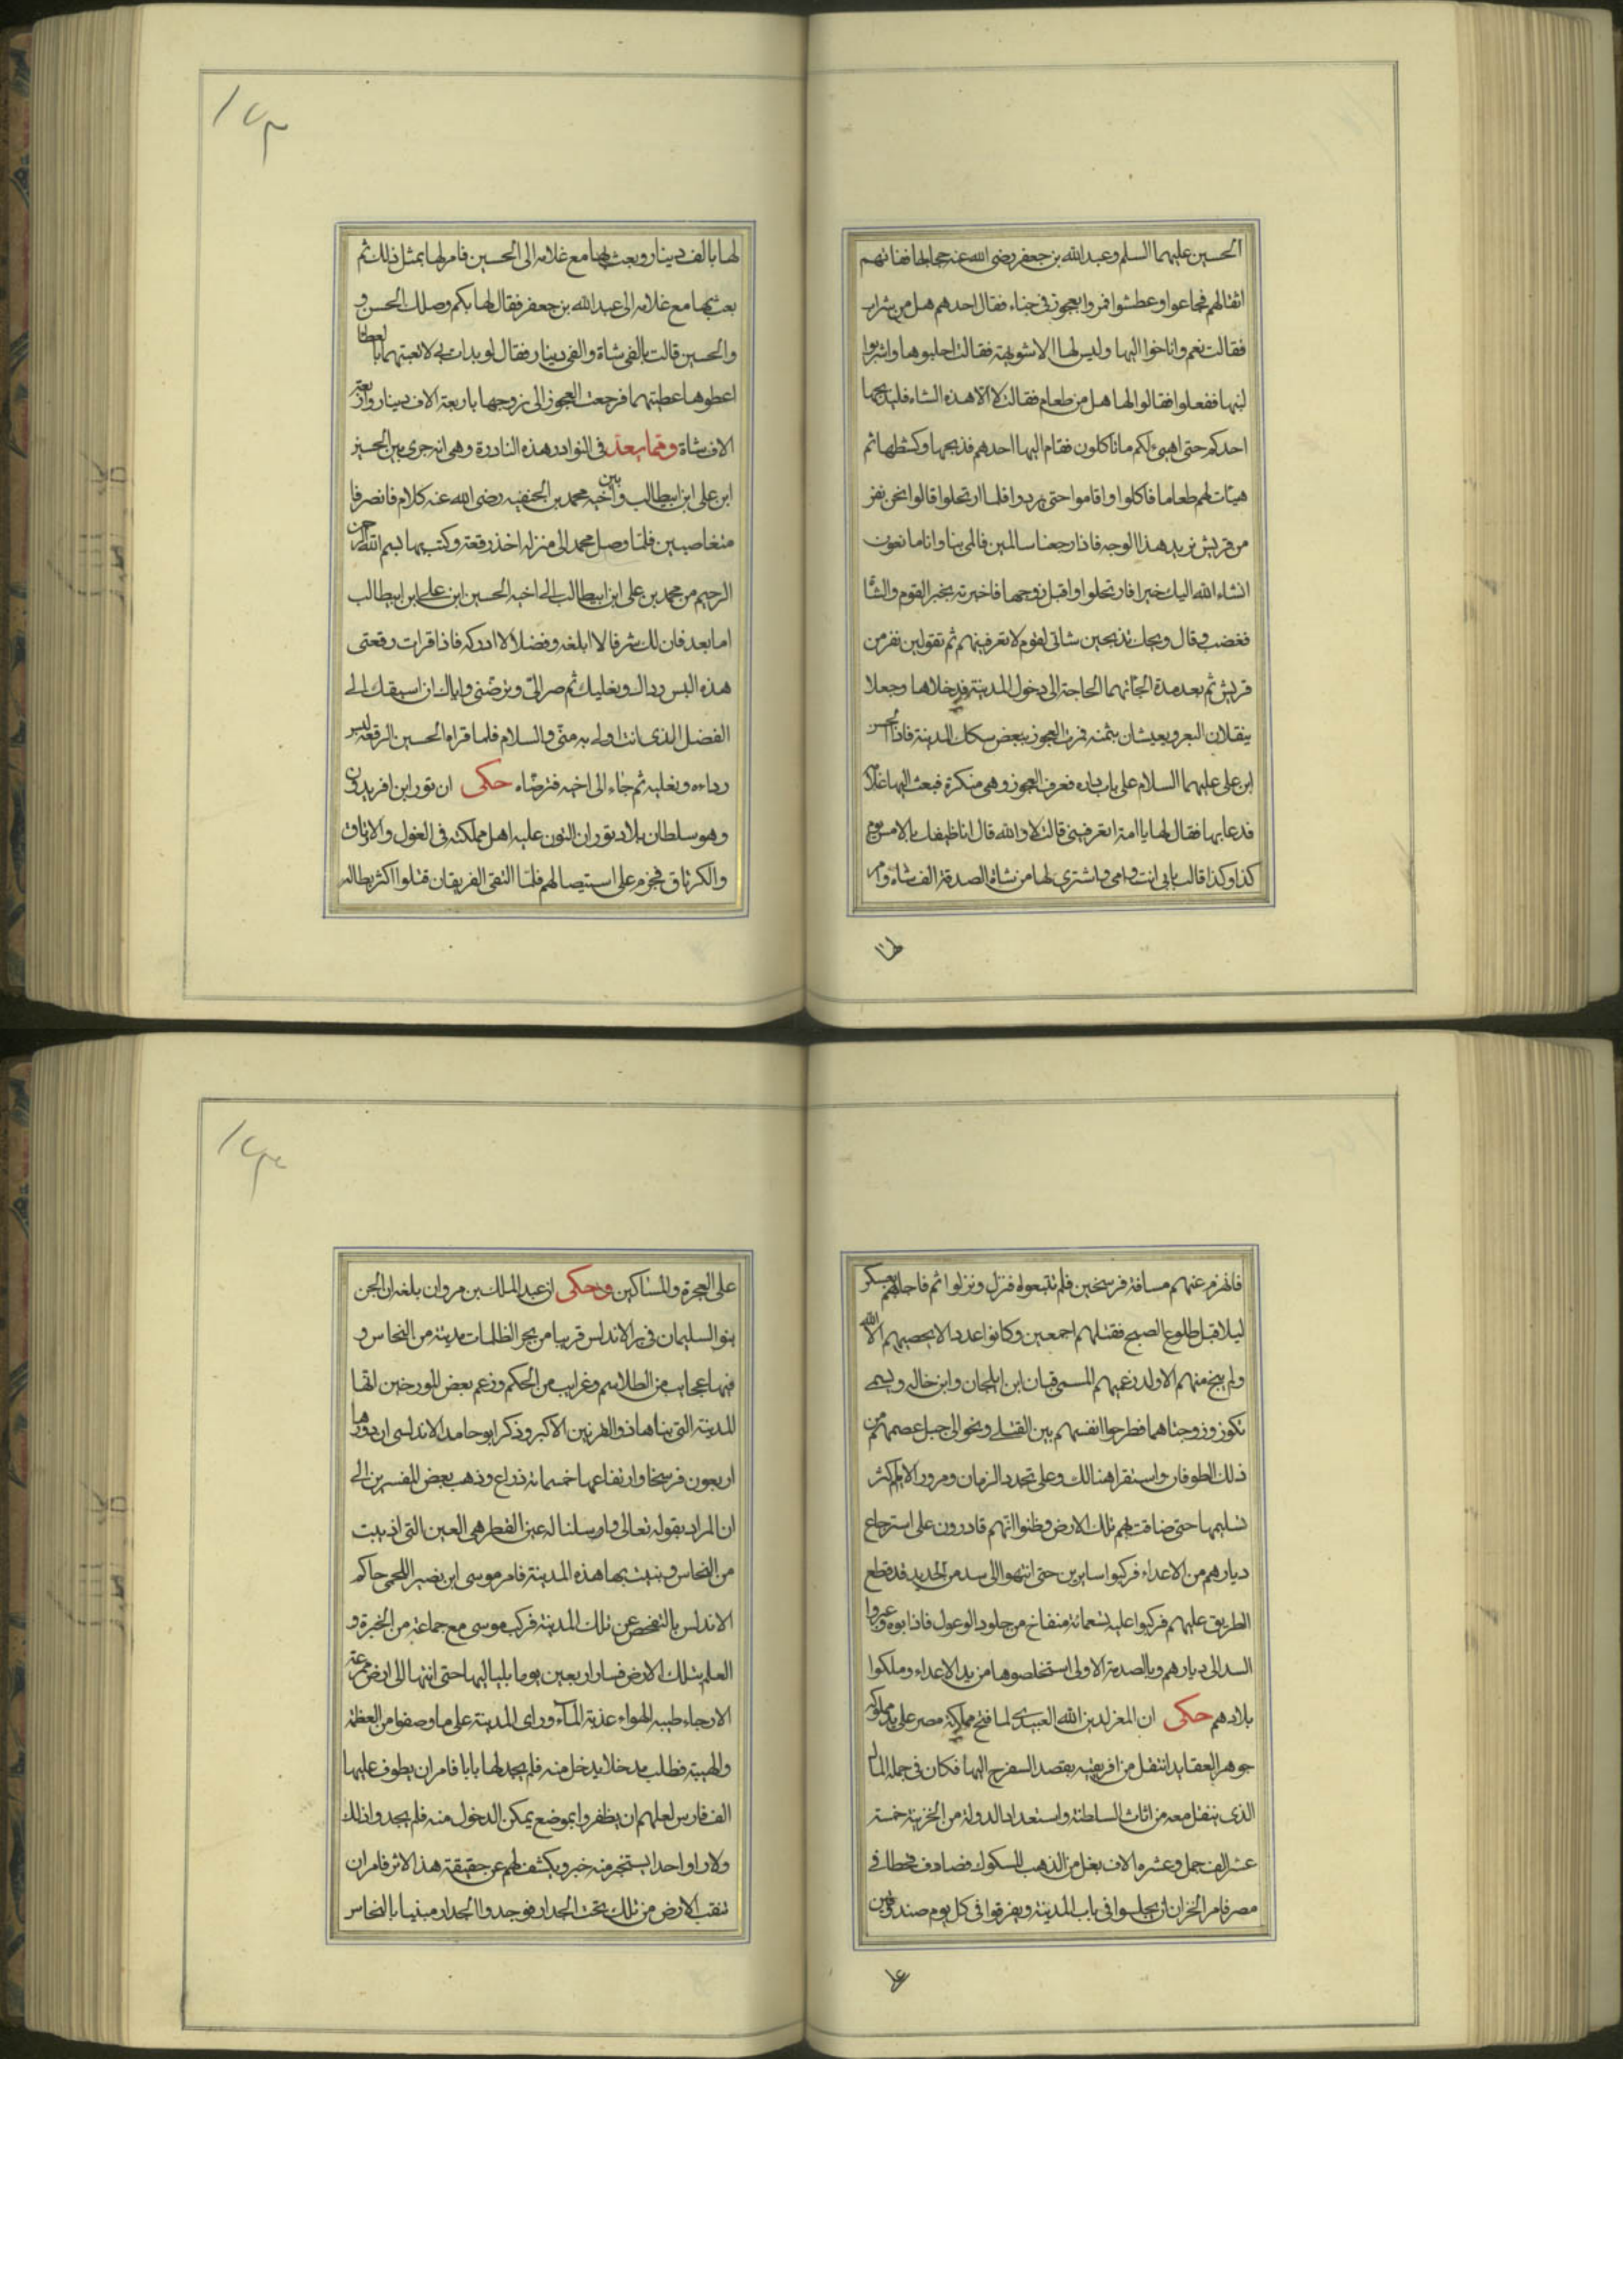 الحسين عليهما السلم وعبد الله بن جعفر رضى الله عنه حجاجا ففاتهم
اثقالهم فجاعوا وعطشوا فمروا بعجوز فى خباء فقال احدهم هل من شراب
فقالت نعم واناخوا اليها وليس لها الا شويهة فقالت احلبوها واشربوا
لبنها ففعلوا فقالوا لها هل من طعام فقالت لا الا هذه الشاه فليذبحها
احدكم حتى اهيئ لكم ما تاكلون فقام اليها احدهم فذبحها وكشطها ثم
هيئات لهم طعاما فاكلوا واقاموا حتى بردوا فلما ارتحلوا قالوا نحن نفر
من قريش نريد هذا الوجه فاذا رجعنا سالمين فالمى بنا وانا صانعون
انشاء الله اليك خيرا فارتحلوا واقبل زوجها فاخبرته بخبر القوم والشا
فغضب وقال ويحك تذبحين شاتى لقوم لا تعرفينهم ثم تقولين نفر من
قريش ثم بعد مدة الجاتهما الحاجة الى دخول المدينة فدخلاها وجعلا
ينقلان البعر ويعيشان بثمنه فمرت العجوز ببعض سكك المدينة فاذا الحسن
ابن على عليهما السلام على باب داره فعرف العجوز وهى منكرة فبعث اليها غلامه
فدعا بها فقال لها يا امة اتعرفينى قالت لا والله قال انا ضيفك بالامس يوم
كذا وكذا قالت بابى انت وامى فاشترى لها من شاة الصدقة الف شاة وامر
لها
لها بالف دينار وبعث بها مع غلامه الى الحسين فامر لها بمثل ذلك ثم
بعث بها مع غلامه الى عبد الله بن جعفر فقال لها بكم وصلك الحسن و
والحسين قالت بالفى شاة والفى دينار فقال لو بدات بى لاتعبتهما
اعطوها عطيتهما فرجعت العجوز الى زوجها باربعة الاف دينار واربعة
الاف شاة ومما يعد فى النوادر هذه النادرة وهى انه جرى بين الحسين
ابن على ابن ابيطالب وبين اخيه محمد بن الحنفيه رضى الله عنه كلام فانصرفا
متغاضبين فلما وصل محمد الى منزله اخذ رقعة وكتب بها بسم الله الرحمن
الرحيم من محمد بن على ابن ابيطالب الى اخيه الحسين ابن على ابن ابيطالب
اما بعد فان لك شرفا لا ابلغه وفضلا لا ادركه فاذا قرات رقعتى
هذه البس رداك ونعليك ثم صر الى وترضنى واياك ان اسبقك الى
الفضل الذى انت اولى به منى والسلام فلما قراه الحسين الرقعة لبس
رداءه ونعليه ثم جاء الى اخيه فترضاه حكى ان تور ابن افريدون
وهو سلطان بلاد توران التون عليه اهل مملكته فى الغول والاتراق
والكرثاق فجزم على استيصالهم فلما التقى الفريقان قتلوا اكثر بطاله
فانهزم عنهم مسافة فرسخين فلم تتبعوه فنزل ونزلوا ثم فاجاهم بعسكر
ليلا قبل طلوع الصبح فقتلهم اجمعين وكانوا عددا لا يحصيهم الا الله
ولم ينج منهم الا ولد زعيمهم المسمى قيان ابن ايلجان وابن خاله ويسمى
تكوز وزوجتاهما فطرحوا انفسهم بين القتلى ونجوا الى جبل عصمهم من
ذلك الطوفان واستقرا هنالك وعلى تجدد الزمان ومرور الايام كثر
نسليهما حتى ضاقت بهم تلك الارض وظنوا انهم قادرون على استرجاع
ديارهم من الاعداء فركبوا سايرين حتى انتهوا الى سد من الحديد قد قطع
الطريق عليهم فركبوا عليه تسعمائة منفاخ من جلود الوعول فاذابوه وعبروا
السد الى ديارهم وبالصدمة الاولى استخلصوها من يد الاعداء وملكوا
بلادهم حكى ان المعز لدين الله العبيدى لما فتح مملكة مصر على يد مملوكه
جوهر العقايد انتقل من افريقيه بقصد السفر اليها فكان فى جملة المال
الذى ينقل معه من اثاث السلطنة واستعداد الدولة من الخزينة خمسة
عشر الف جمل وعشرة الاف بغل من الذهب المسكوك فصادف قحطا فى
مصر فامر الخزان ان يجلسوا فى باب المدينة ويفرقوا فى كل يوم صندوقين
على
على العجزة والمساكين وحكى ان عبد الملك بن مروان بلغه ان الجن
بنوا لسليمان فى بر الاندلس قريبا من بحر الظلمات مدينة من النحاس و
فيها عجايب من الطلاسم وغرايب من الحكم وزعم بعض المورخين انها
المدينة التى بناها ذو القرنين الاكبر وذكر ابو حامد الاندلسى ان دورها
اربعون فرسخا وارتفاعها خمسمائة ذراع وذهب بعض المفسرين الى
ان المراد بقوله تعالى وارسلنا له عين القطر هى العين التى اذيبت
من النحاس وبنيت بها هذه المدينة فامر موسى ابن نصير اللخمى حاكم
الاندلس بالتفحص عن تلك المدينة فركب موسى مع جماعة من الخبرة و
العلم بتلك الارض فسار اربعين يوما بلياليها حتى انتها الى ارض ممرعة
الارجاء طيبه الهواء عذبة الماء وراى المدينة على ما وصفوا من العظمة
والهيبة فطلب مدخلا يدخل منه فلم يجد لها بابا فامر ان يطوف عليها
الف فارس لعلهم ان يظفروا بموضع يمكن الدخول منه فلم يجدوا ذلك
ولا راوا احدا يستخبر منه خبر ويكشف لهم عن حقيقة هذا الاثر فامر ان
تنقب الارض من تلك تحت الجدار فوجدوا الجدار مبنيا بالنحاس